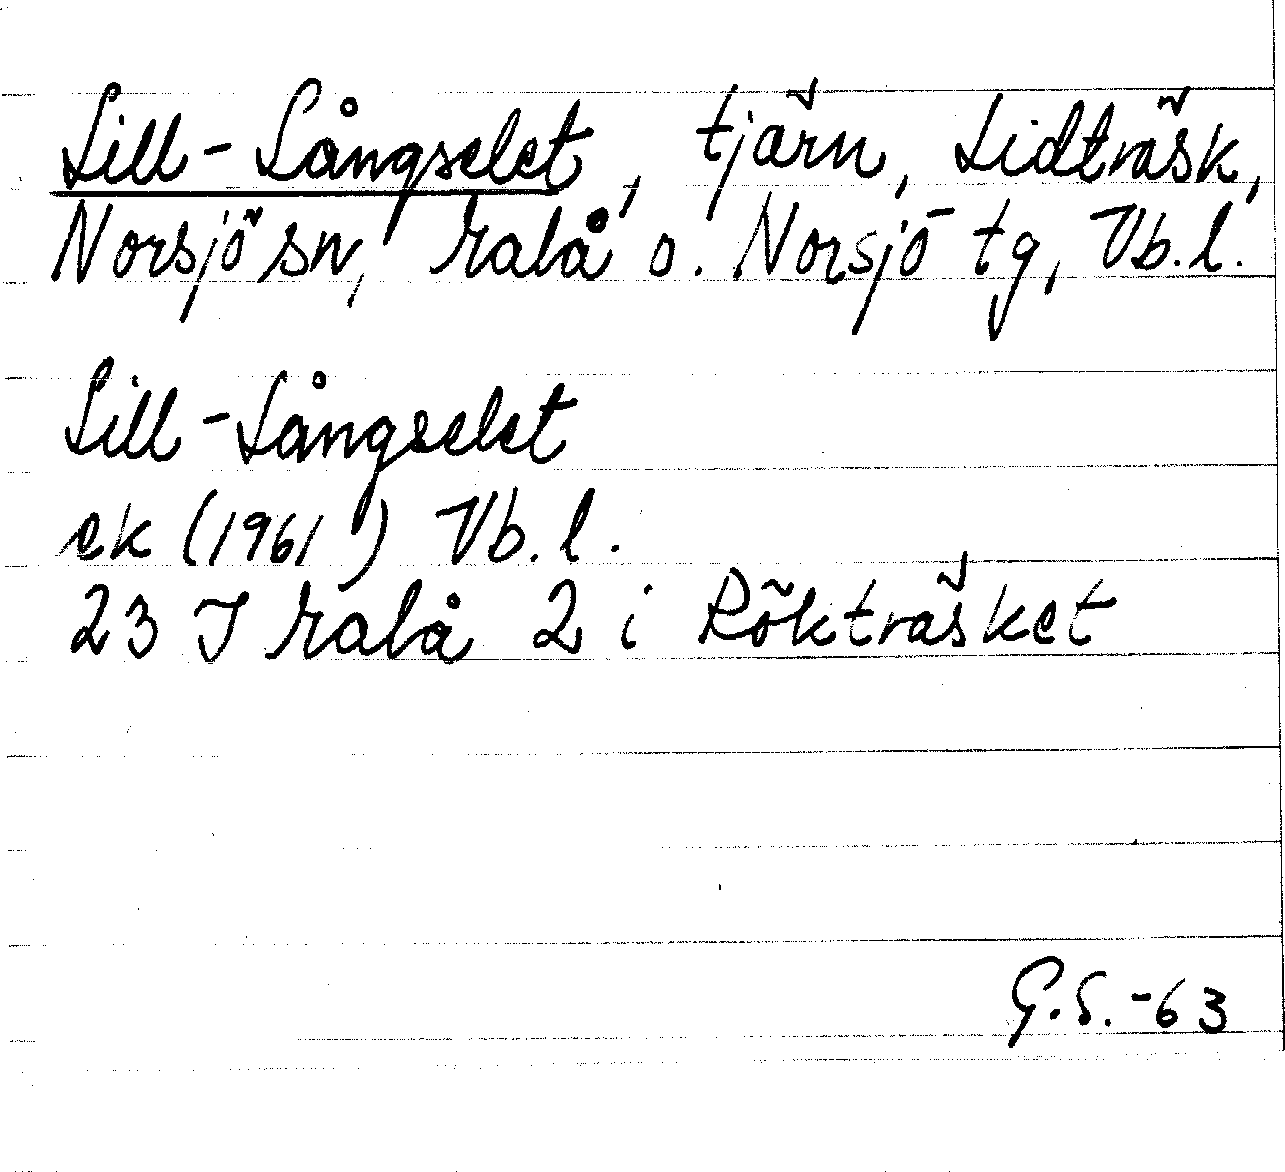 Lill-Långselet, tjärn, Lidträsk,
Norsjö sn, Malå o. Norsjö tg, Vb.l.
Lill-Långselet
ek (1961) Vb.l.
23 I Malå 2 i Rökträsket
G.S.-63